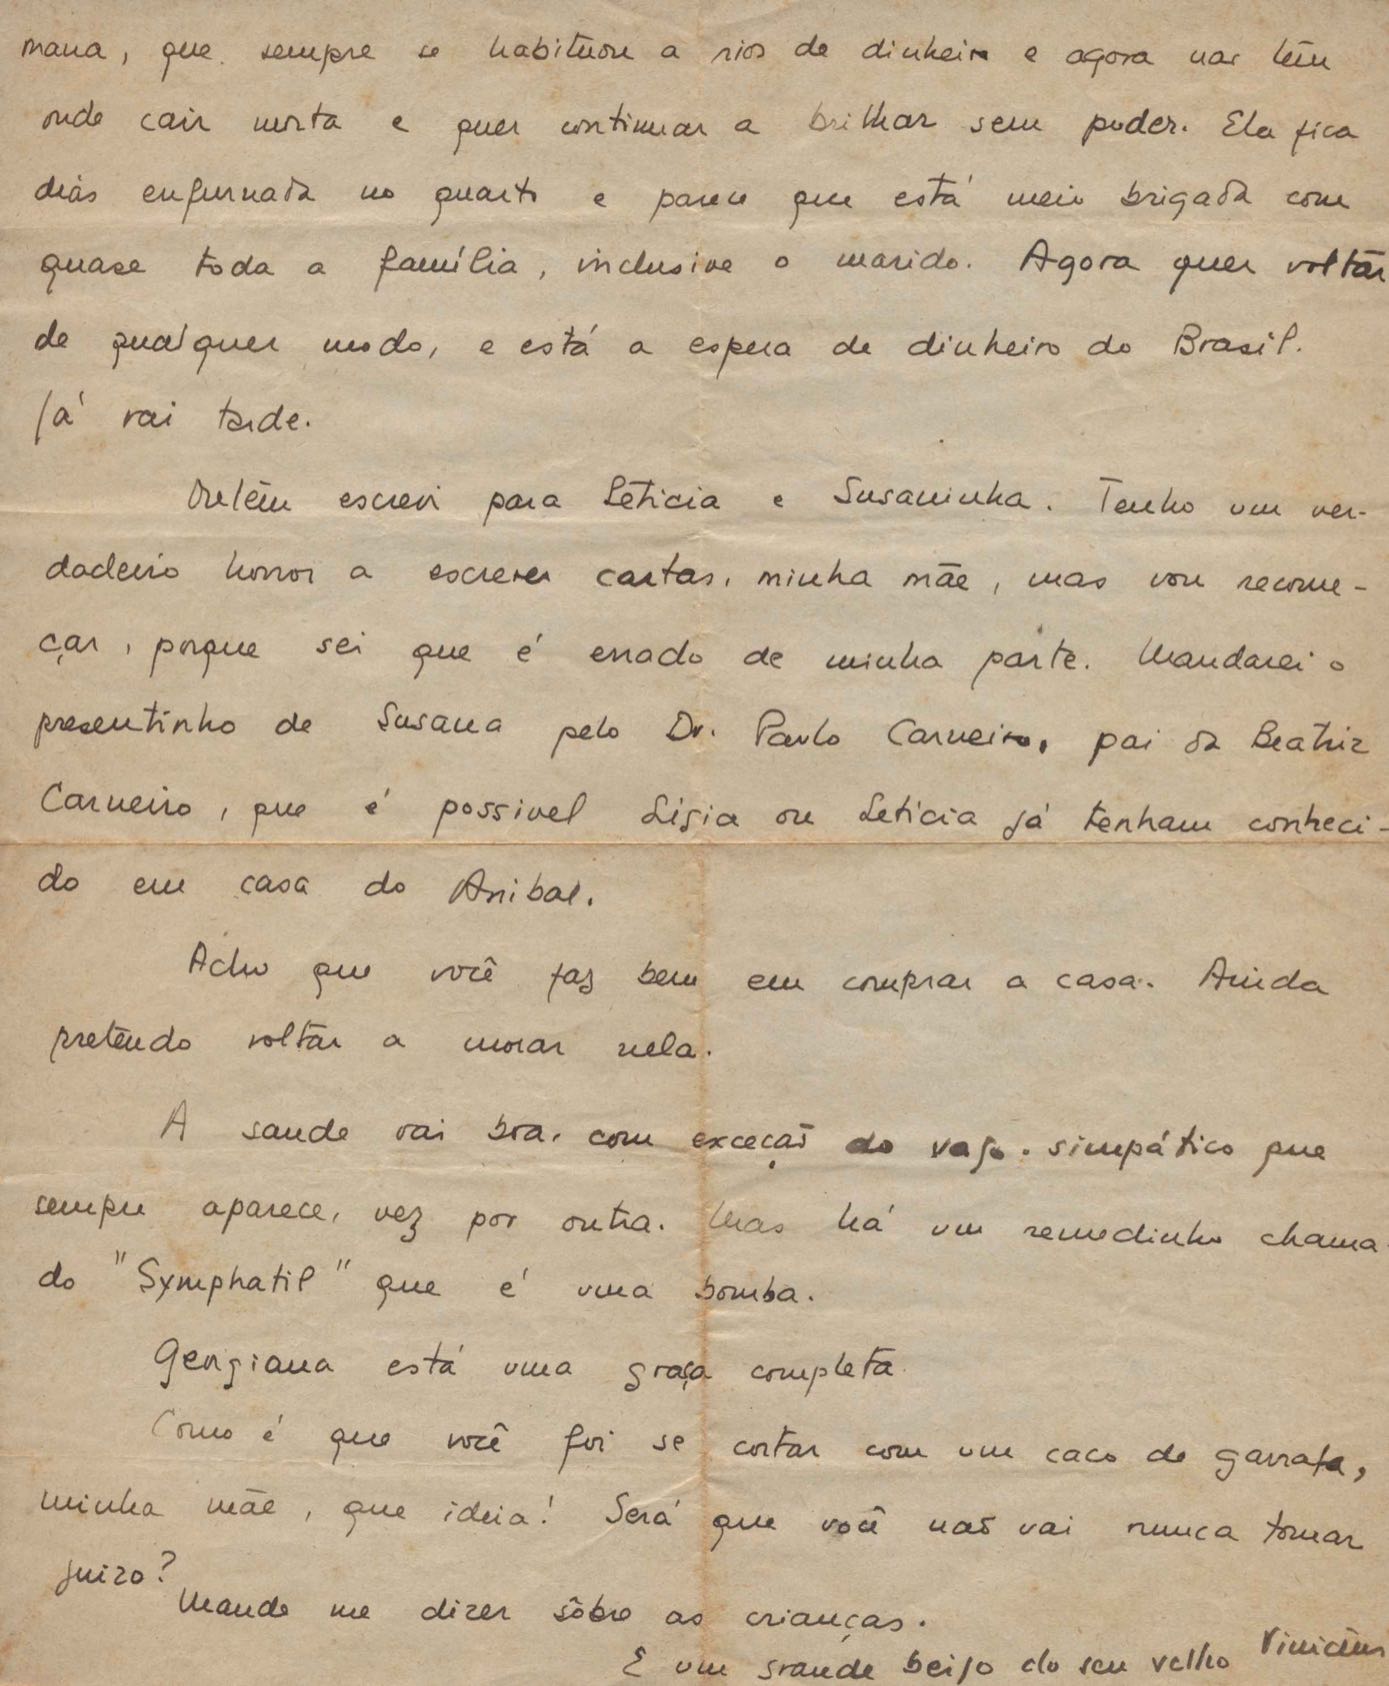 mana, que sempre se habituou a rios de dinheiro e agora não tem
onde cair morta e quer continuar a brilhar sem poder. Ela fica
dias enfurnada no quarto e parece que está meio brigada com
quase toda a família, inclusive o marido. Agora quer voltar
de qualquer modo, e está a espera de dinheiro do Brasil.
Já vai tarde.
Ontem escrevi para Leticia e Susaninha. Tenho um ver-
dadeiro horror a escrever cartas, minha mãe, mas vou recome-
çar, porque sei que é errado de minha parte. Mandarei o
presentinho de Susana pelo Dr. Paulo Carneiro, pai da Beatriz
Carneiro, que é possivel Ligia ou Leticia já tenham conheci-
do em casa do Anibal.
Acho que você faz bem em comprar a casa. Ainda
pretendo voltar a morar nela.
A saude vai boa, com exceção do vago-simpático que
sempre aparece, vez por outra. Mas há um remedinho chama-
do "Symphatil" que é uma bomba.
Georgiana está uma graça completa.
Como é que você foi se cortar com um caco de garrafa,
minha mãe, que ideia! Será que você não vai nunca tomar
juizo?
Mande me dizer sôbre as crianças.
E um grande beijo do seu velho Vinicius